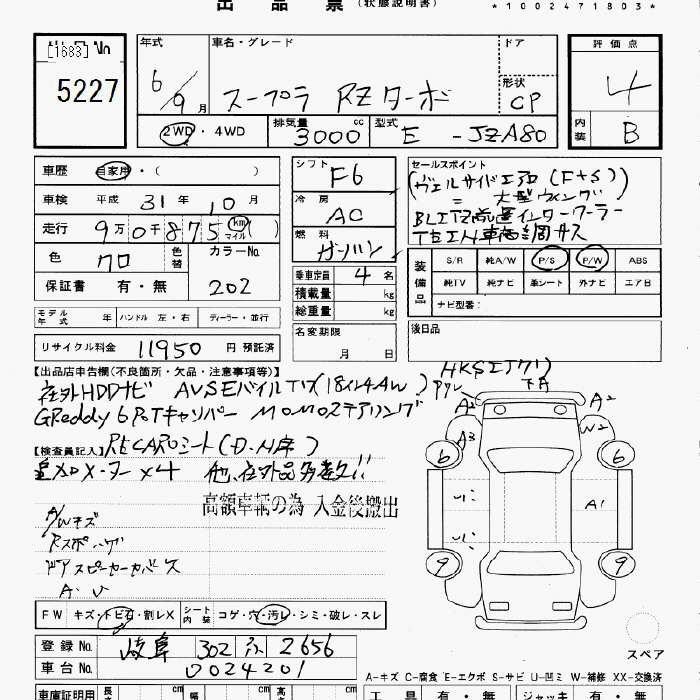 出品票 (状態説明書) *1002471803*
[1683] No
5227
年式 車名・グレード ドア 評価点
6/9月 スープラ RZターボ 形状 CP 4
2WD・4WD 排気量 3000cc 型式 E-JZA80 内装 B
車歴 自家用・( )
車検 平成31年10月
走行 9万0千875 km マイル ( )
色 クロ 色替 カラーNo. 202
保証書 有・無
シフト F6
冷房 AC
燃料 ガソリン
乗車定員 4名
積載量 kg
総重量 kg
名変期限 月 日
セールスポイント
(ヴェルサイドエアロ(F+S))
= 大型ウィング
BLITZ前置インタークーラー
TEIN車高調サス
装備品 S/R 純A/W P/S P/W ABS
純TV 純ナビ 革シート 外ナビ エアB
ナビ型番:
後日品
モデル年式 年 ハンドル 左・右 ディーラー・並行
リサイクル料金 11950 円 預託済
【出品店申告欄(不良箇所・欠品・注意事項等)】
社外HDDナビ AVSEバイルTい(18インチAW)
GReddy 6PoTキャリパー MOMOステアリング
【検査員記入】RECAROシート(D.N席)
追加メーター×4 他、社外品多数!!
高額車輌の為 入金後搬出
A/Wキズ
Rスポ
ドアスピーカーカバー
A.U
FW キズ・トビ石・割レX シート内装 コゲ・穴・汚レ・シミ・破レ・スレ
登録No. 岐阜 302 ふ 2656
車台No. 0024201
HKSエアクリ
下A
A2 A2
A3 W2
6 6
A1
9 9
スペア
A-キズ C-腐食 E-エクボ S-サビ U-凹ミ W-補修 XX-交換済
車庫証明用 長さ cm 幅 cm 高さ cm
工具 有・無 ジャッキ 有・無